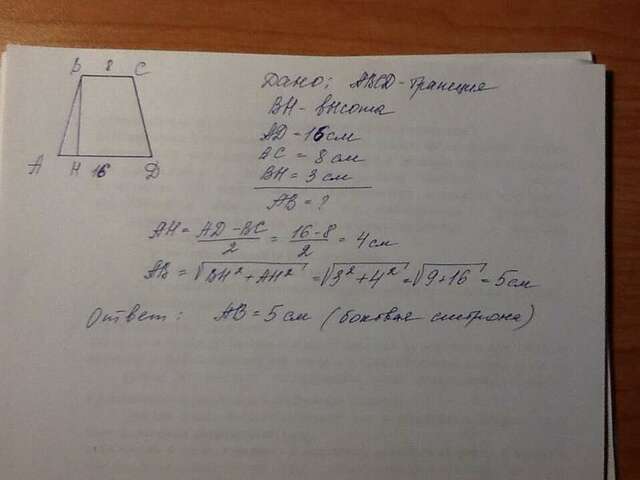 B 8 C
A H 16 D
Дано: ABCD - трапеция
BH - высота
AD = 16 см
BC = 8 см
BH = 3 см
AB = ?
AH = AD - BC / 2 = 16 - 8 / 2 = 4 см
AB = √BH² + AH² = √3² + 4² = √9 + 16 = 5 см
Ответ: AB = 5 см (боковая сторона)